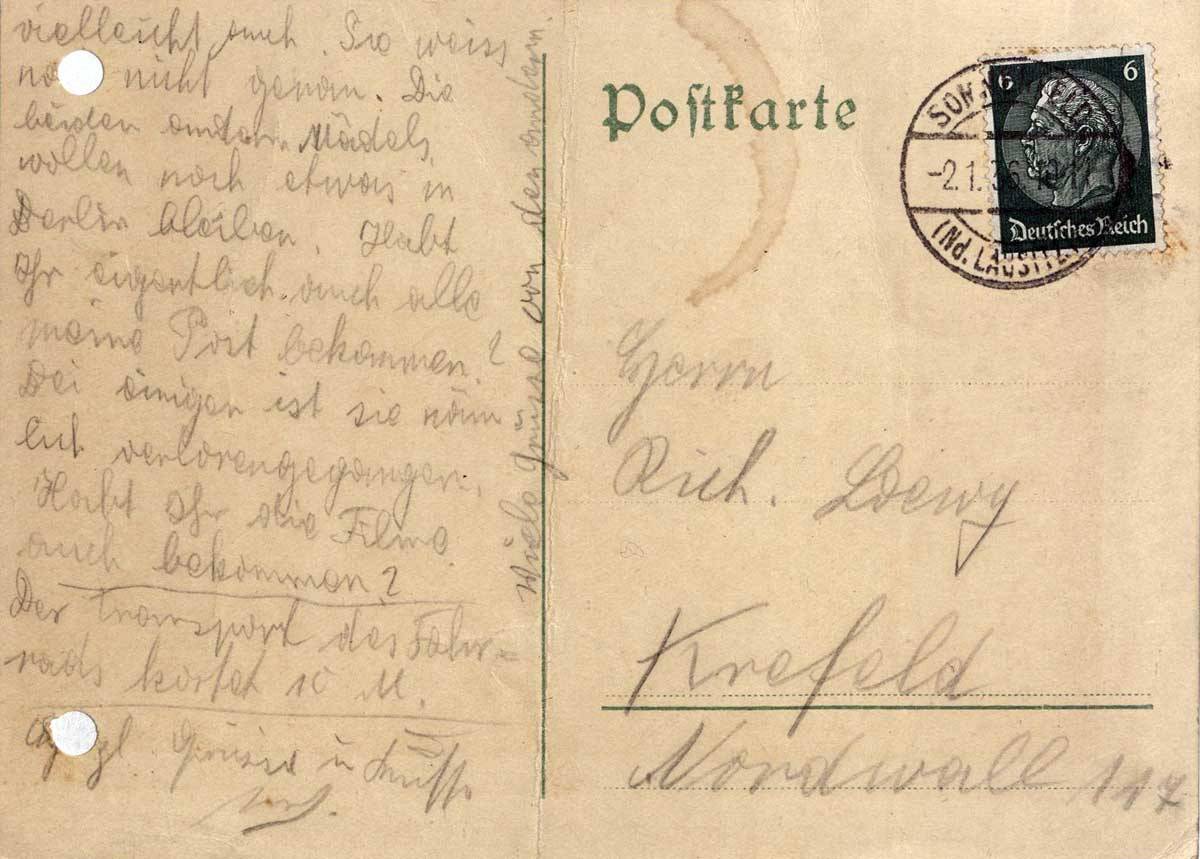 vielleicht auch. Sie weiss
nicht genau. Die
beiden andern Mädels
wollen noch etwas in
Berlin bleiben. Habt
Ihr eigentlich auch alle
meine Post bekommen?
Bei einigen ist sie näm
lich verlorengegangen.
Habt Ihr die Filme
auch bekommen?
Der Transport des Fahr=
rads kostet 10 M.
Grüsse u Küsse
Viele Grüsse von den andern
Postkarte
6 6
Deutsches Reich
-2.1.36
(Nd. LAUSITZ)
Herrn
Rich. Loewy
Krefeld
Nordwall 117